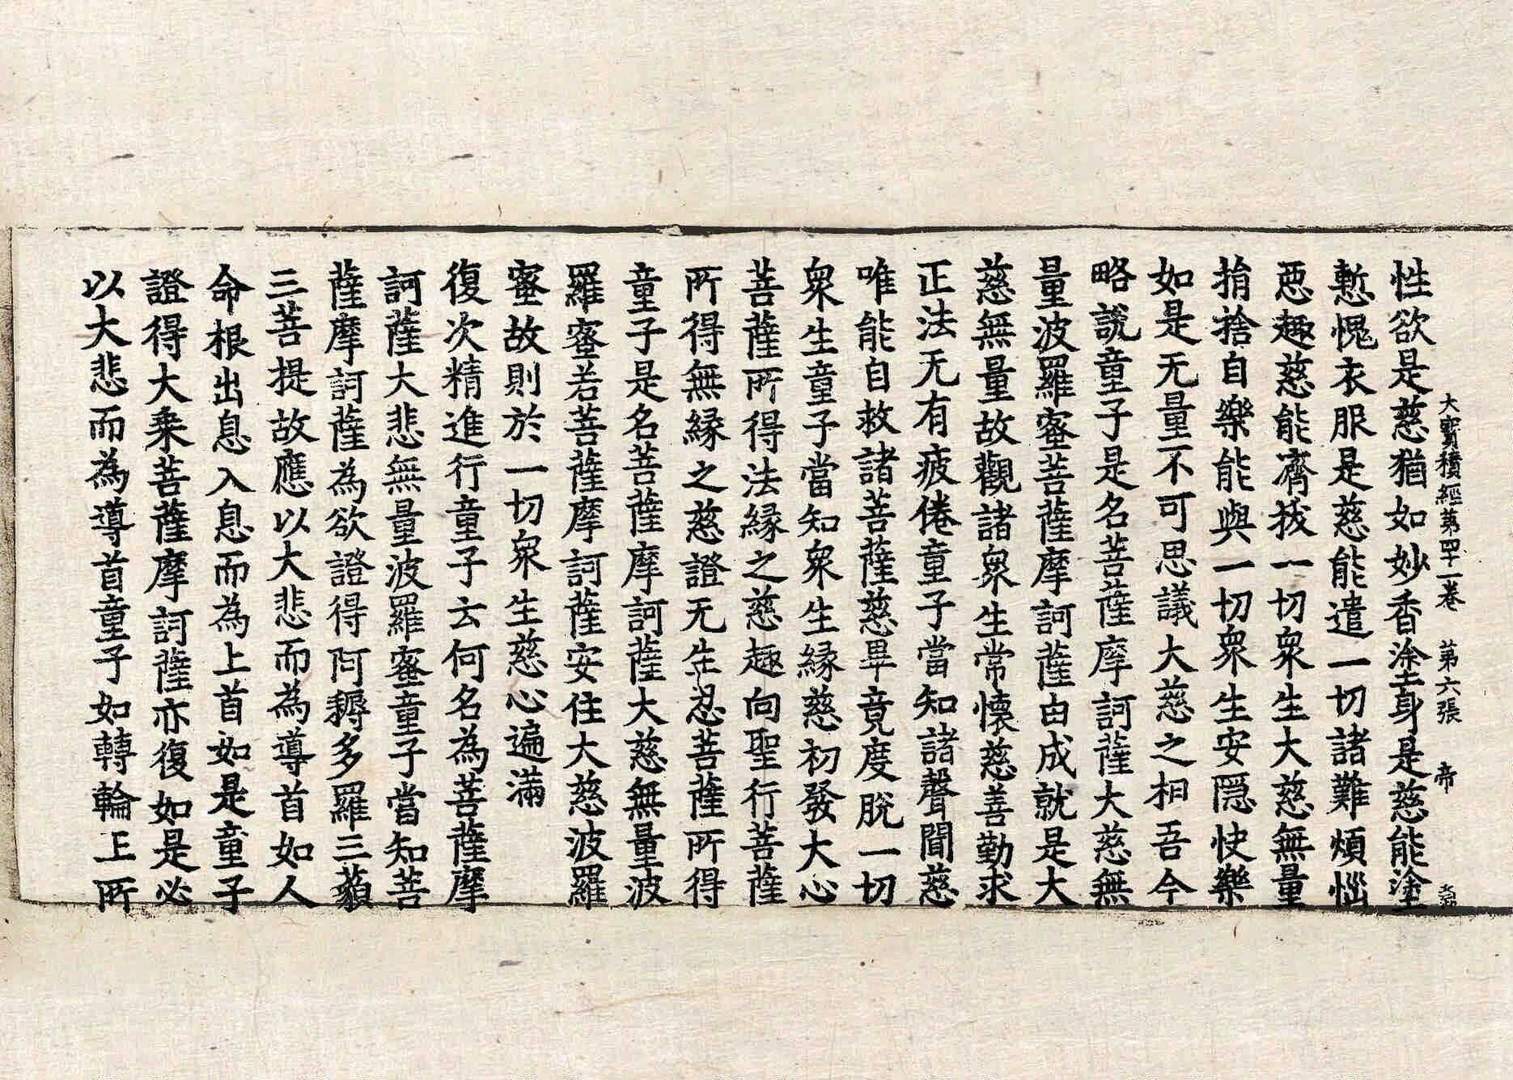 大寶積經第四十一卷 第六張 帝
性欲是慈猶如妙香塗身是慈能塗
慙愧衣服是慈能遣一切諸難煩惱
惡趣慈能濟拔一切衆生大慈無量
捐捨自樂能與一切衆生安隱快樂
如是无量不可思議大慈之相吾今
略說童子是名菩薩摩訶薩大慈無
量波羅蜜菩薩摩訶薩由成就是大
慈無量故觀諸衆生常懷慈善勤求
正法无有疲倦童子當知諸聲聞慈
唯能自救諸菩薩慈畢竟度脫一切
衆生童子當知衆生緣慈初發大心
菩薩所得法緣之慈趣向聖行菩薩
所得無緣之慈證无生忍菩薩所得
童子是名菩薩摩訶薩大慈無量波
羅蜜若菩薩摩訶薩安住大慈波羅
蜜故則於一切衆生慈心遍滿
復次精進行童子云何名為菩薩摩
訶薩大悲無量波羅蜜童子當知菩
薩摩訶薩為欲證得阿耨多羅三藐
三菩提故應以大悲而為導首如人
命根出息入息而為上首如是童子
證得大乘菩薩摩訶薩亦復如是必
以大悲而為導首童子如轉輪王所